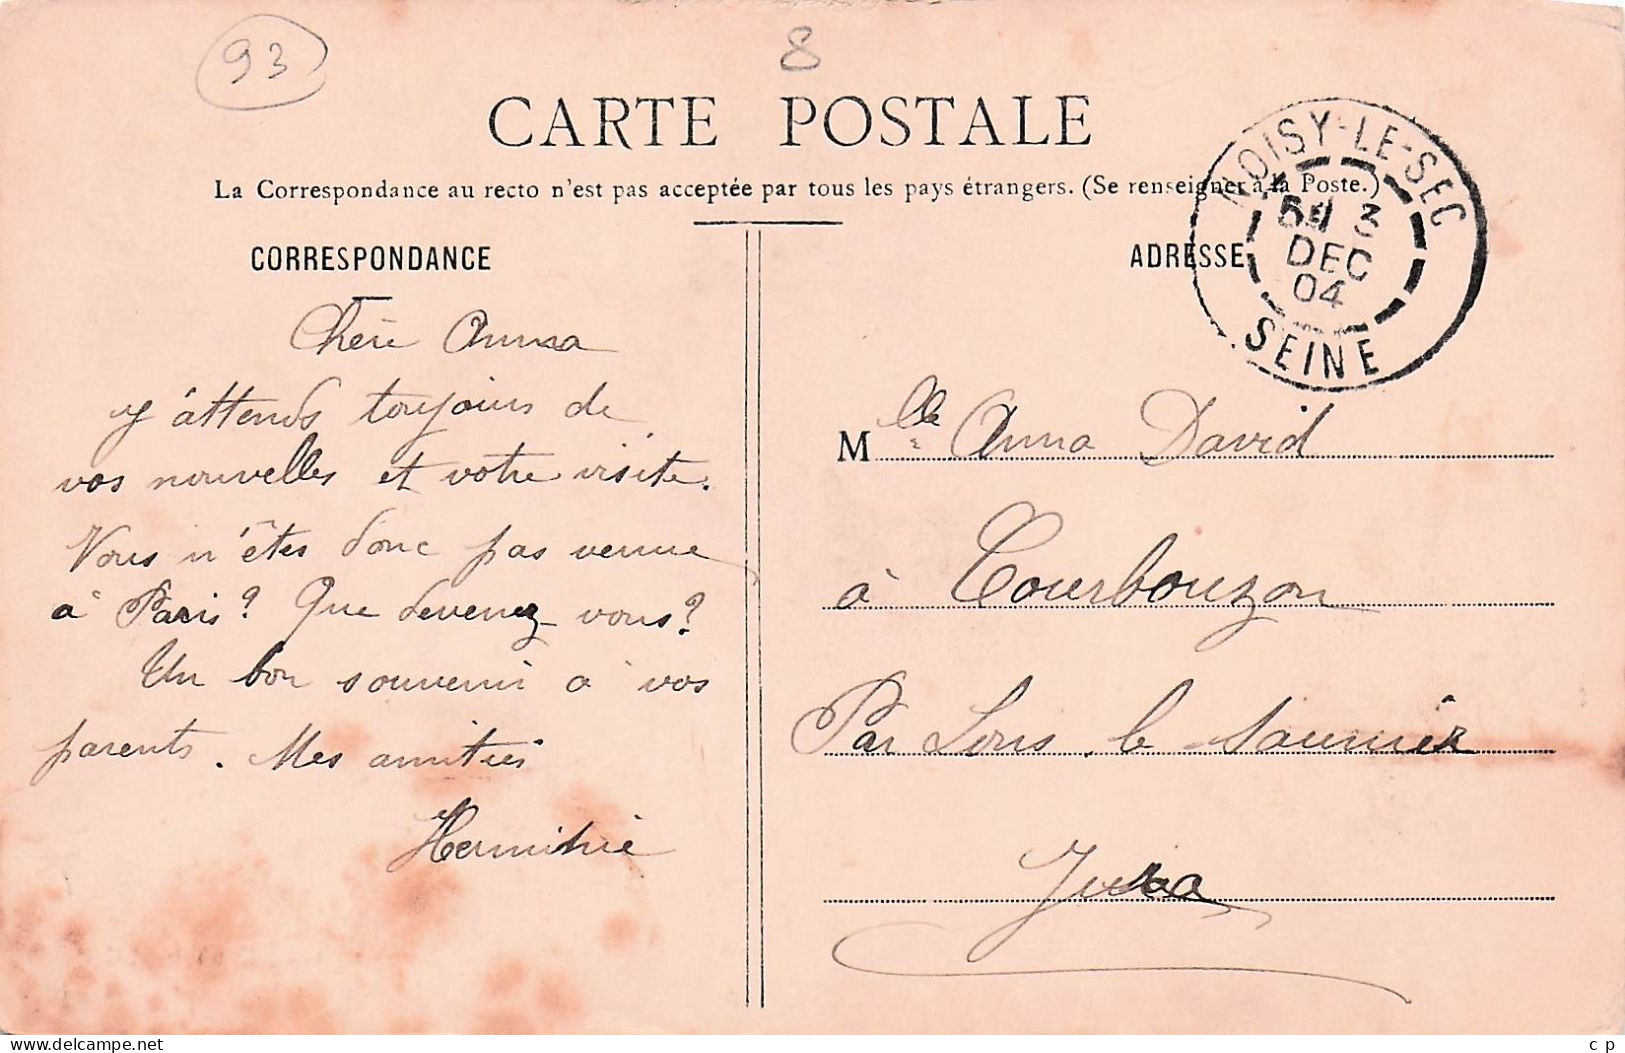 93
8
CARTE POSTALE
La Correspondance au recto n'est pas acceptée par tous les pays étrangers. (Se renseigner à la Poste.)
CORRESPONDANCE
Chère Anna
J'attends toujours de
vos nouvelles et votre visite.
Vous n'êtes donc pas venue
à Paris? Que devenez vous?
Un bon souvenir à vos
parents. Mes amitiés
Herminie
ADRESSE
NOISY-LE-SEC
3
DEC
04
SEINE
Mlle Anna David
à Courbouzon
Par Lons le Saunier
Jura
c p